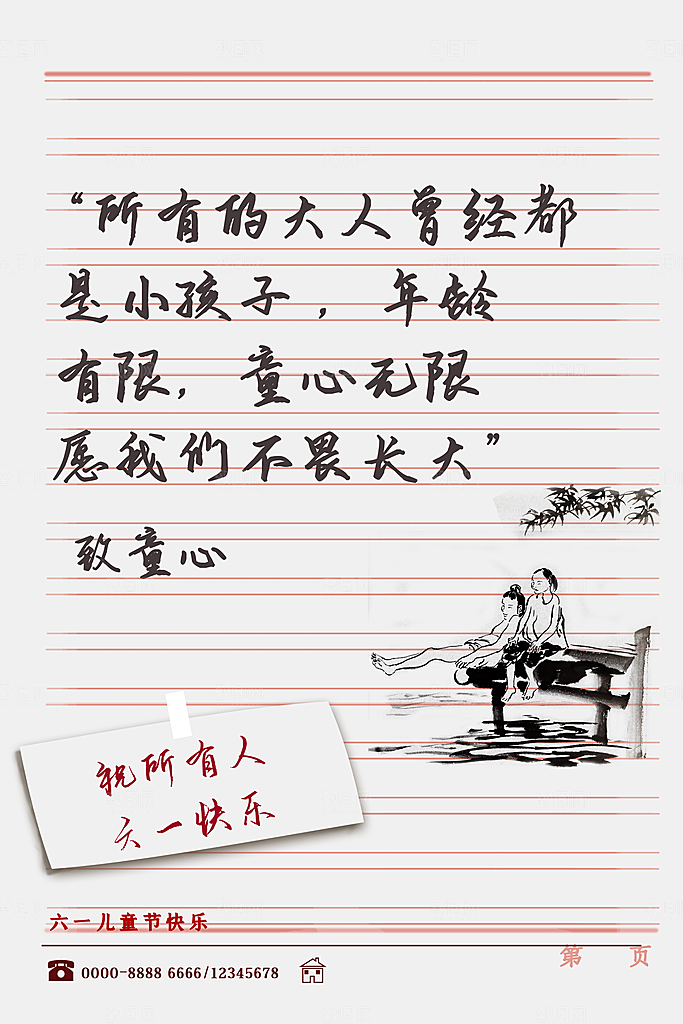 “所有的大人曾经都
是小孩子，年龄
有限，童心无限
愿我们不畏长大”
致童心
祝所有人
六一快乐
六一儿童节快乐
第 页
0000-8888 6666/12345678